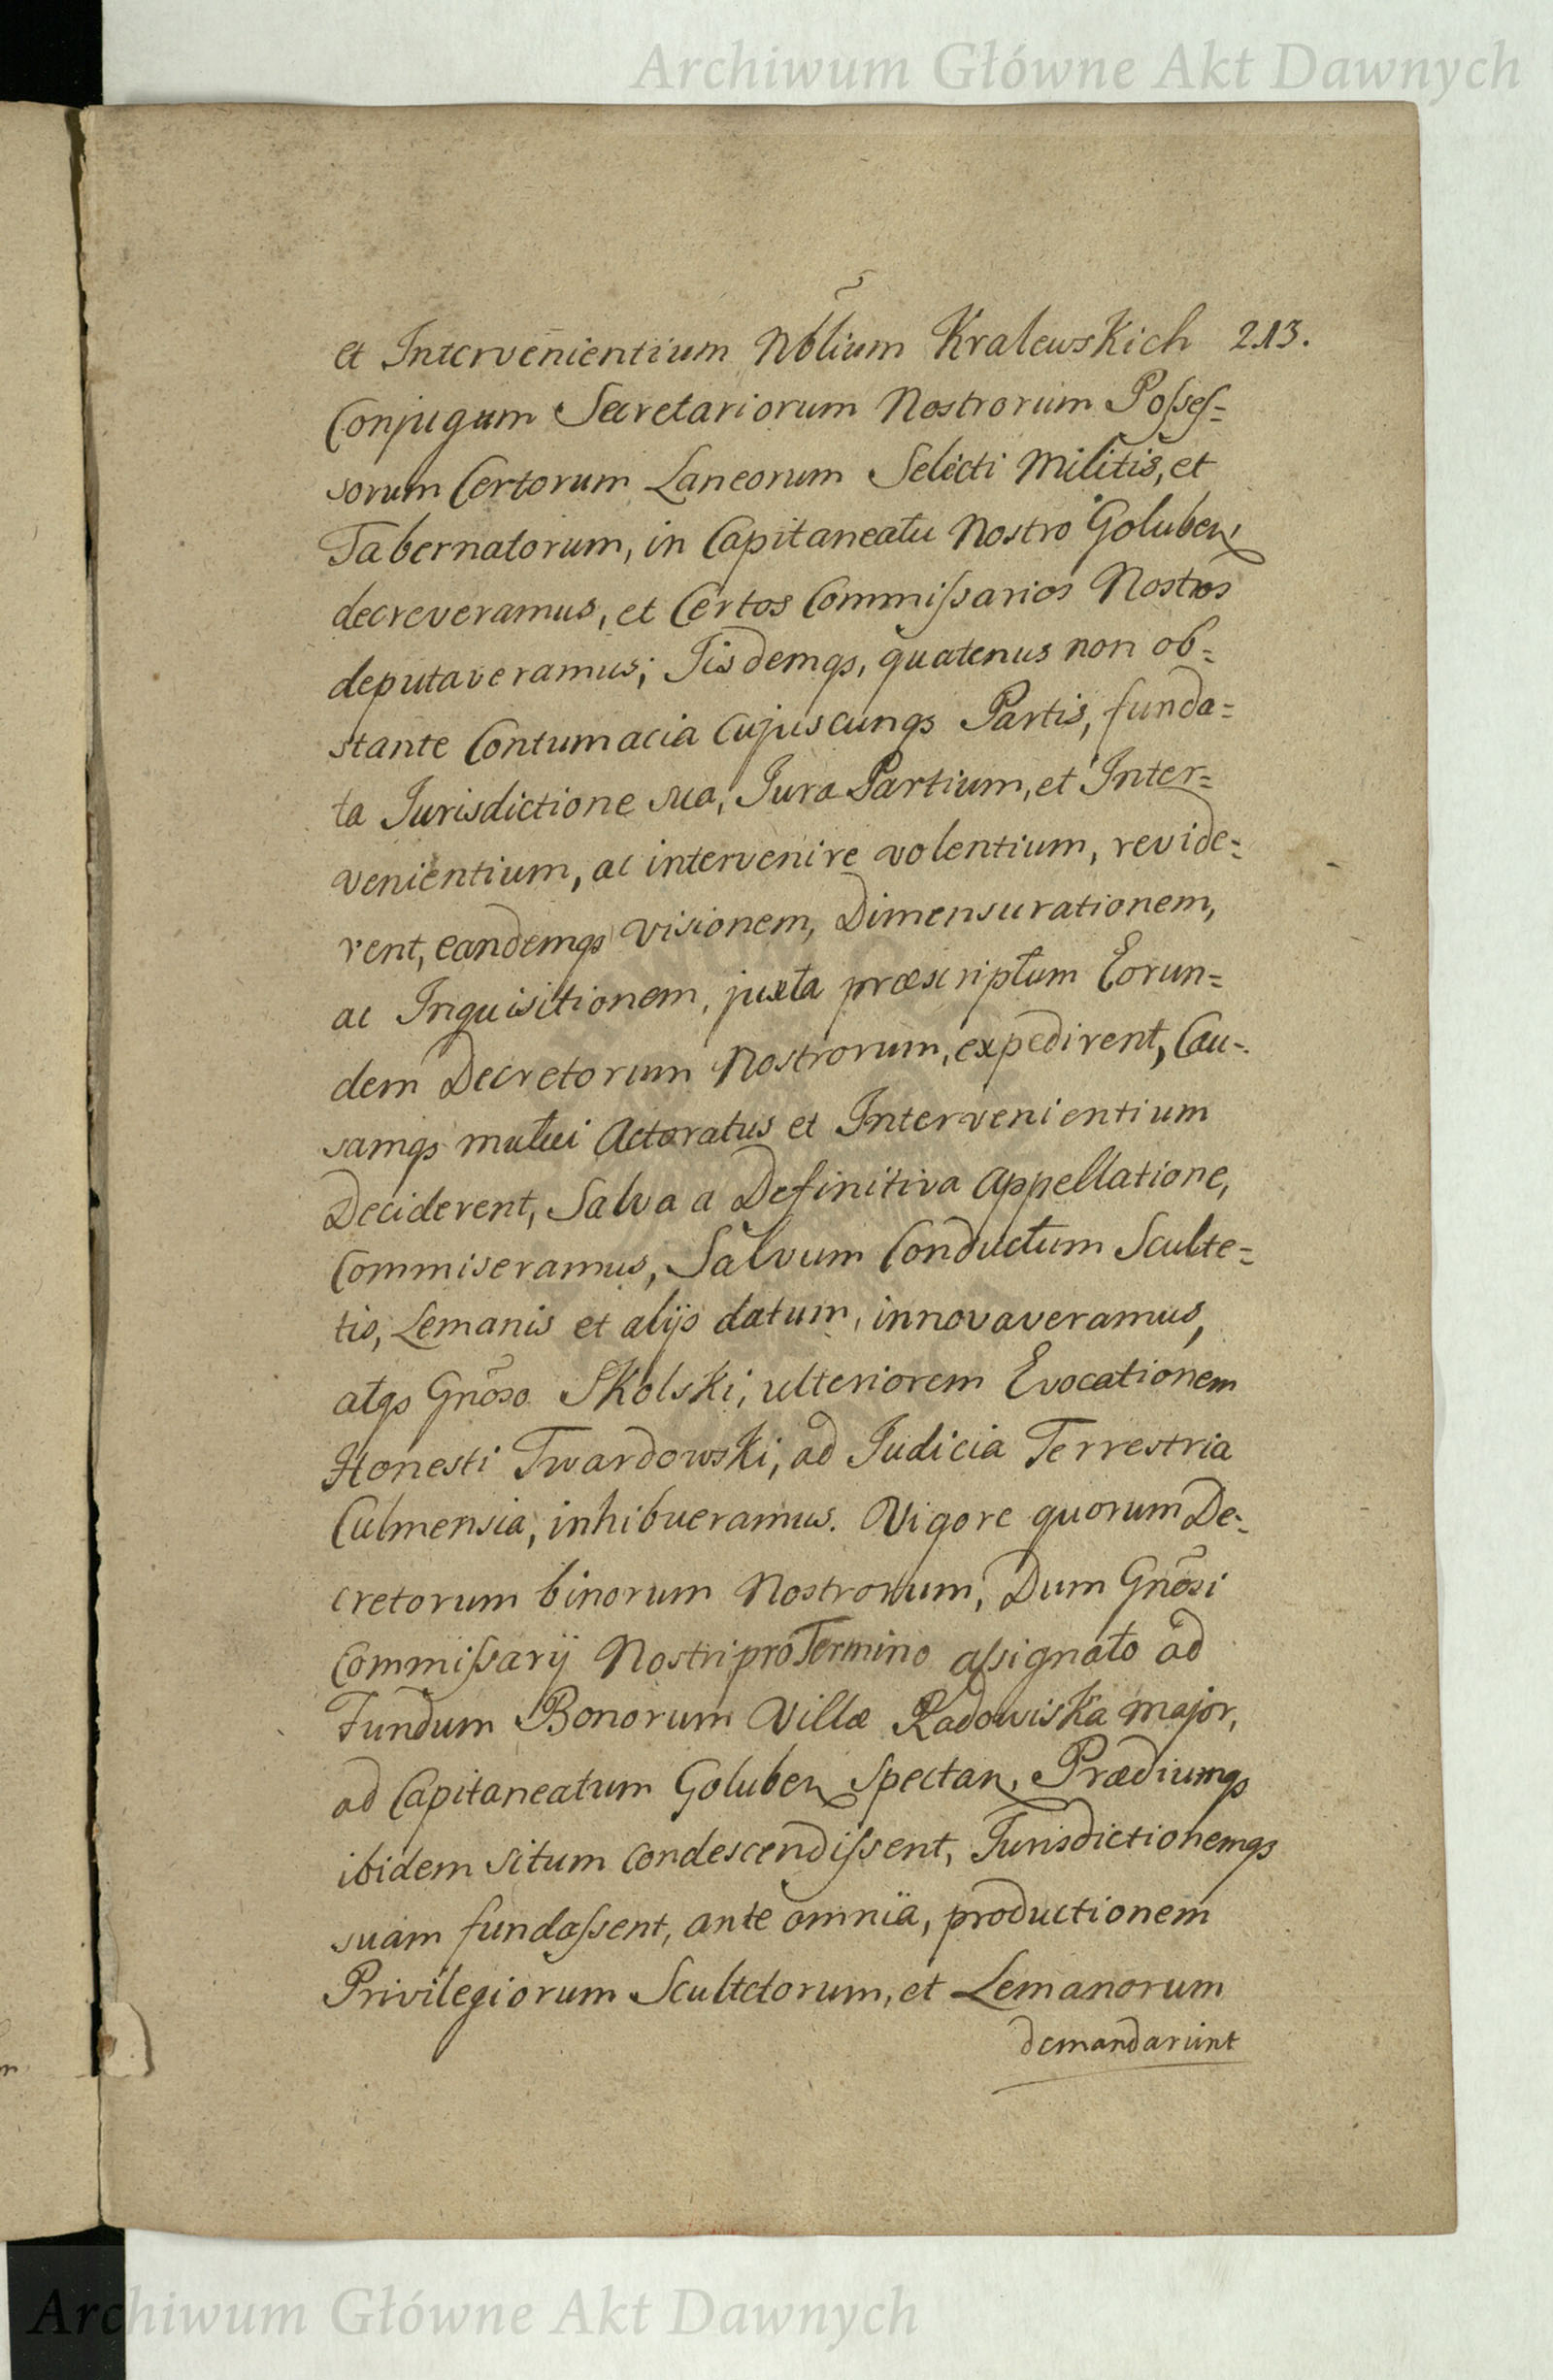 Archiwum Główne Akt Dawnych
et Intervenientium Nõlium Kralewskich 213.
Conjugum Secretariorum Nostrorum Posses=
sorum Certorum Laneorum Selecti Militis, et
Tabernatorum, in Capitaneatu Nostro Goluben,
decreveramus, et Certos Commissarios Nostros
deputaveramus; Iisdemqs, quatenus non ob=
stante Contumacia Cujuscunqs Partis, funda=
ta Jurisdictione sua, Jura Partium, et Inter=
venientium, ac intervenire volentium, revide=
rent, eandemqs visionem, Dimensurationem,
ac Inquisitionem, juxta præscriptum Eorun=
dem Decretorum Nostrorum, expedirent, Cau=
samqs mutui Actoratus et Intervenientium
Deciderent, Salva a Definitiva Appellatione,
Commiseramus, Salvum Conductum Sculte=
tis, Lemanis et alijs datum, innovaveramus,
atqs Gnõso Skolski, ulteriorem Evocationem
Honesti Twardowski, ad Judicia Terrestria
Culmensia, inhibueramus. Vigore quorum De=
cretorum binorum Nostrorum, Dum Gnõsi
Commissarij Nostri pro Termino assignato ad
Fundum Bonorum Villæ Radowiska major,
ad Capitaneatum Goluben spectan, Prædiumqs
ibidem situm condescendissent, Jurisdictionemqs
suam fundassent, ante omnia, productionem
Privilegiorum Scultetorum, et Lemanorum
demandarunt
Archiwum Główne Akt Dawnych